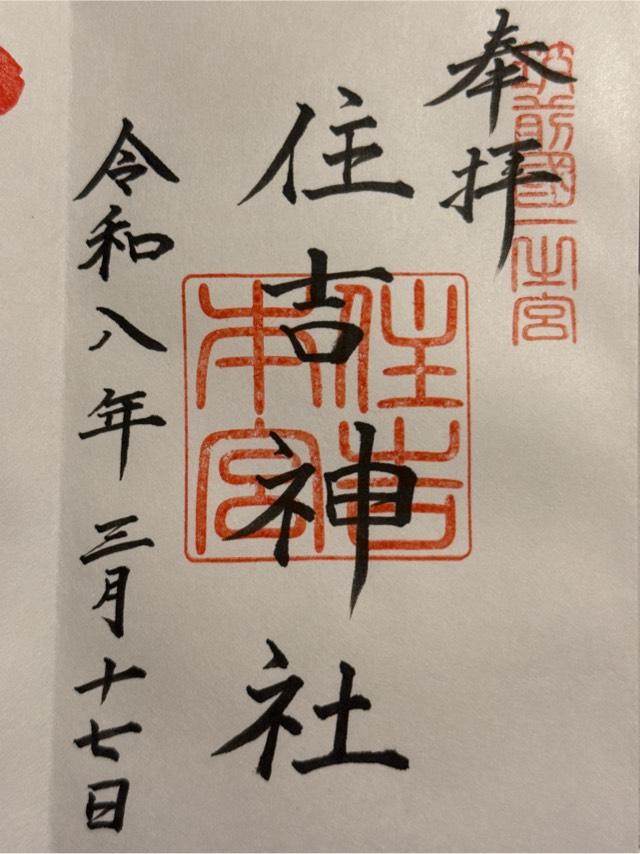 奉拝
筑前國一之宮
住吉神社
住吉本宮
令和八年三月十七日